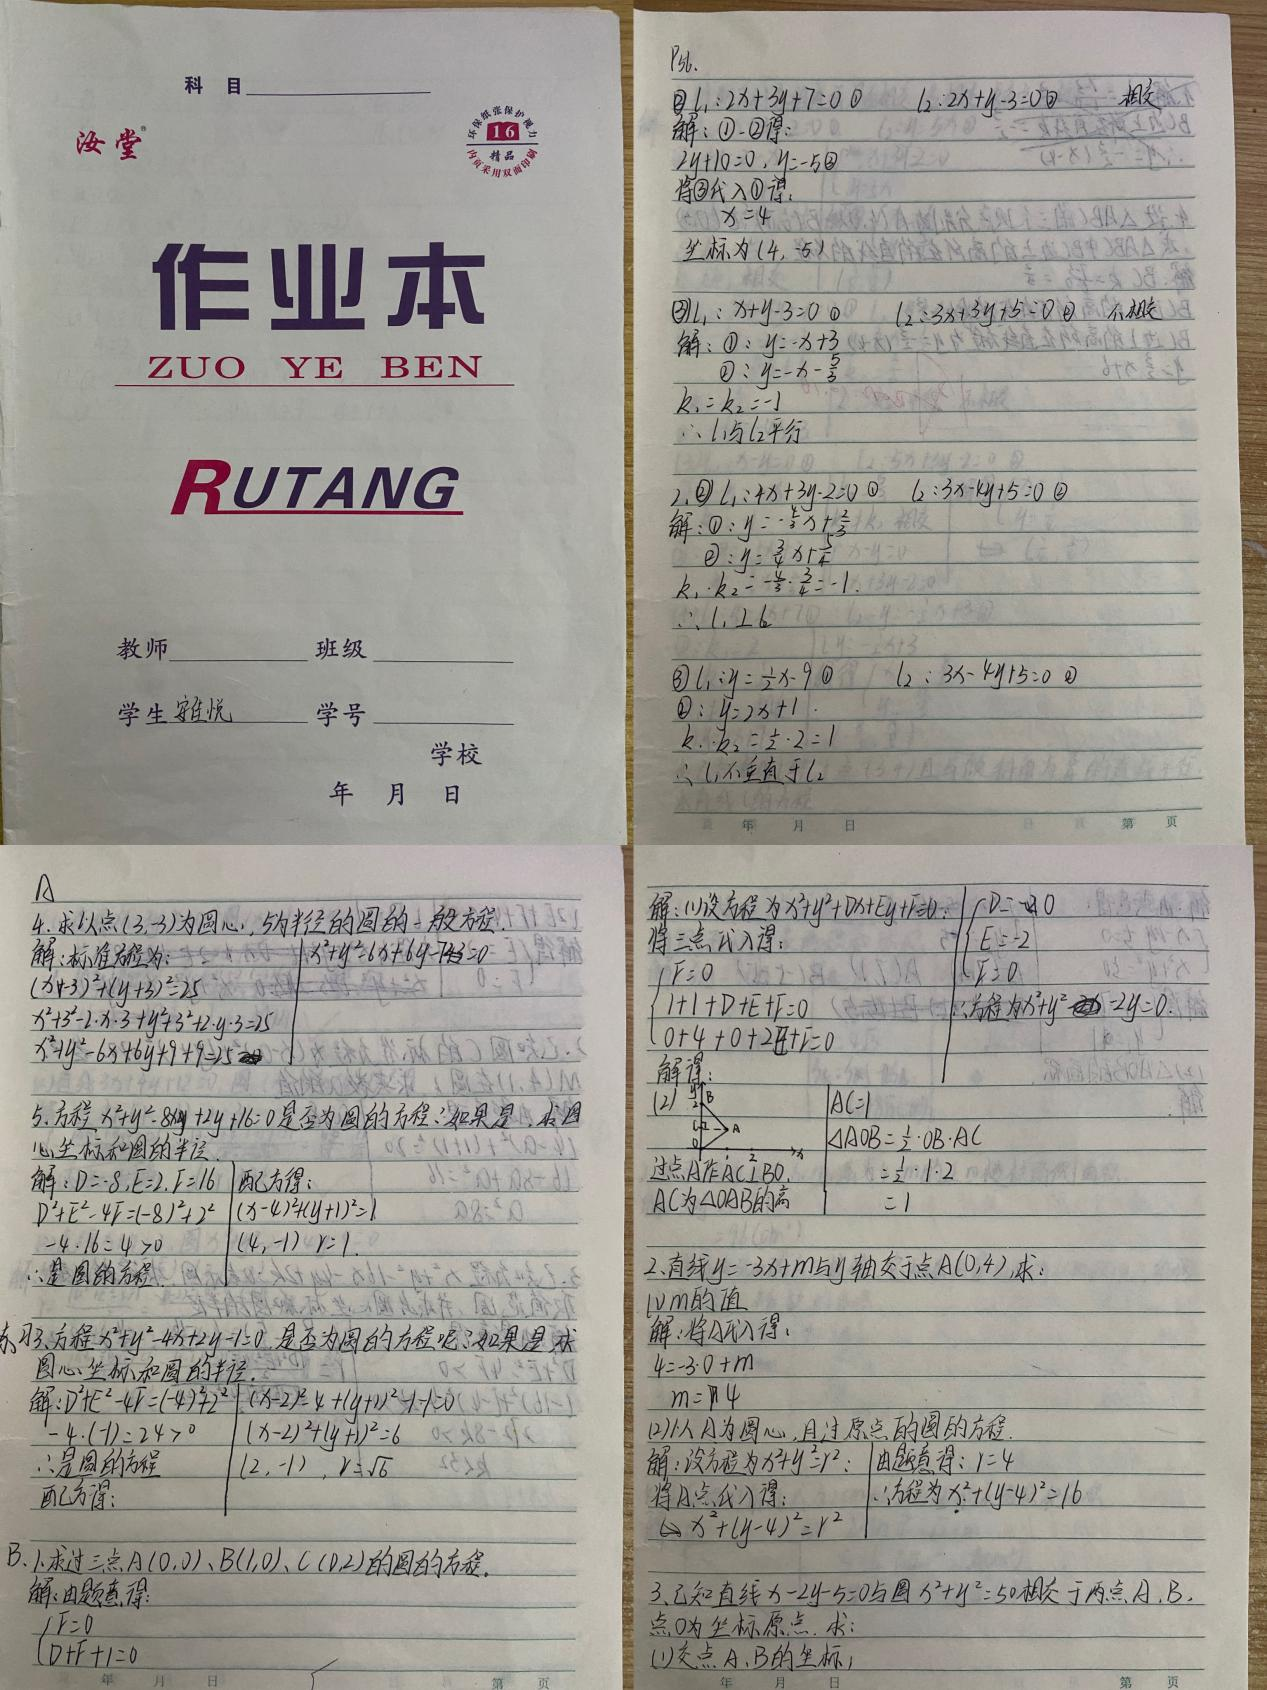 科 目
汝堂
环保纸张保护视力
16
精品
内页采用双面印刷
作业本
ZUO YE BEN
RUTANG
教师 班级
学生 雅悦 学号
学校
年 月 日
P56.
② l₁:2x+3y+7=0① l₂:2x+y-3=0② 相交
解:①-②得:
2y+10=0, y=-5③
将③代入①得:
x=4
坐标为(4,-5)
③ l₁:x+y-3=0① l₂:3x+3y+5=0② 不相交
解:①:y=-x+3
②:y=-x-5/3
k₁=k₂=-1
∴l₁与l₂平行
2.② l₁:4x+3y-2=0① l₂:3x-4y+5=0②
解:①:y=-4/3x+2/3
②:y=3/4x+5/4
k₁·k₂=-4/3·3/4=-1.
∴l₁⊥l₂
③ l₁:y=1/2x-9① l₂:3x-4y+5=0②
②:y=2x+1.
k₁·k₂=1/2·2=1
∴l₁不垂直于l₂
年 月 日 第 页
A
4.求以点(3,-3)为圆心,5为半径的圆的一般方程.
解:标准方程为:
(x-3)²+(y+3)²=25
x²+3²-2·x·3+y²+3²+2·y·3=25
x²+y²-6x+6y+9+9=25
x²+y²-6x+6y-7=0
5.方程x²+y²-8x+2y+16=0是否为圆的方程?如果是,求圆
心坐标和圆的半径.
解:D=-8,E=2,F=16
D²+E²-4F=(-8)²+2²
-4·16=4>0
∴是圆的方程.
配方得:
(x-4)²+(y+1)²=1
(4,-1) r=1.
练习3.方程x²+y²-4x+2y-1=0,是否为圆的方程呢?如果是求
圆心坐标和圆的半径.
解:D²+E²-4F=(-4)²+2²
-4·(-1)=24>0
∴是圆的方程
配方得:
(x-2)²-4+(y+1)²-1-1=0
(x-2)²+(y+1)²=6
(2,-1), r=√6
B.1.求过三点A(0,0)、B(1,0)、C(0,2)的圆的方程.
解:由题意得:
F=0
D+F+1=0
年 月 日 第 页
解:(1)设方程为x²+y²+Dx+Ey+F=0.
将三点代入得:
F=0
1+1+D+E+F=0
0+4+0+2E+F=0
解得:
D=0
E=-2
F=0
∴方程为x²+y²-2y=0.
(2)
y
2 B
C A
0 1 2 x
过点A作AC⊥BO.
AC为△OAB的高
AC=1
△AOB=1/2·OB·AC
=1/2·1·2
=1
2.直线y=-3x+m与y轴交于点A(0,4),求:
(1)m的值
解:将A代入得:
4=-3·0+m
m=4
(2)以A为圆心,且过原点的圆的方程.
解:设方程为x²+y²=r²:
将A点代入得:
x²+(y-4)²=r²
由题意得:r=4
∴方程为x²+(y-4)²=16
3.已知直线x-2y-5=0与圆x²+y²=50相交于两点A、B,
点O为坐标原点.求:
(1)交点A、B的坐标;
年 月 日 第 页